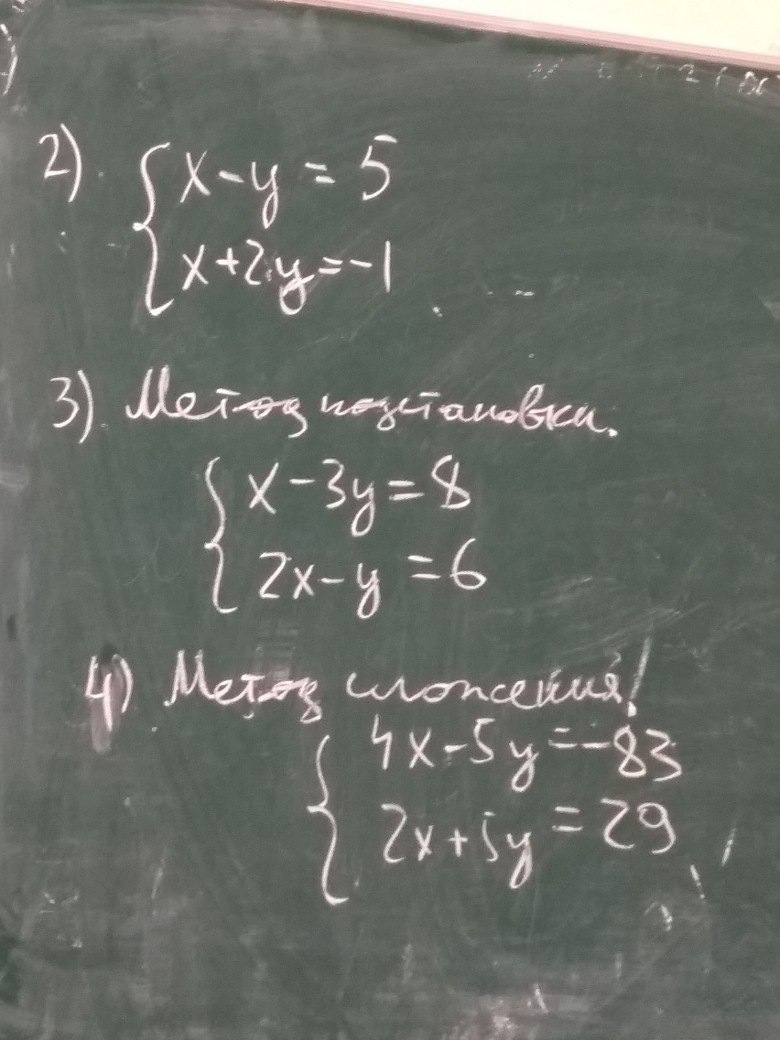 2) { x - y = 5
x + 2y = -1
3) Метод подстановки.
{ x - 3y = 8
2x - y = 6
4) Метод сложения!
{ 4x - 5y = -83
2x + 5y = 29